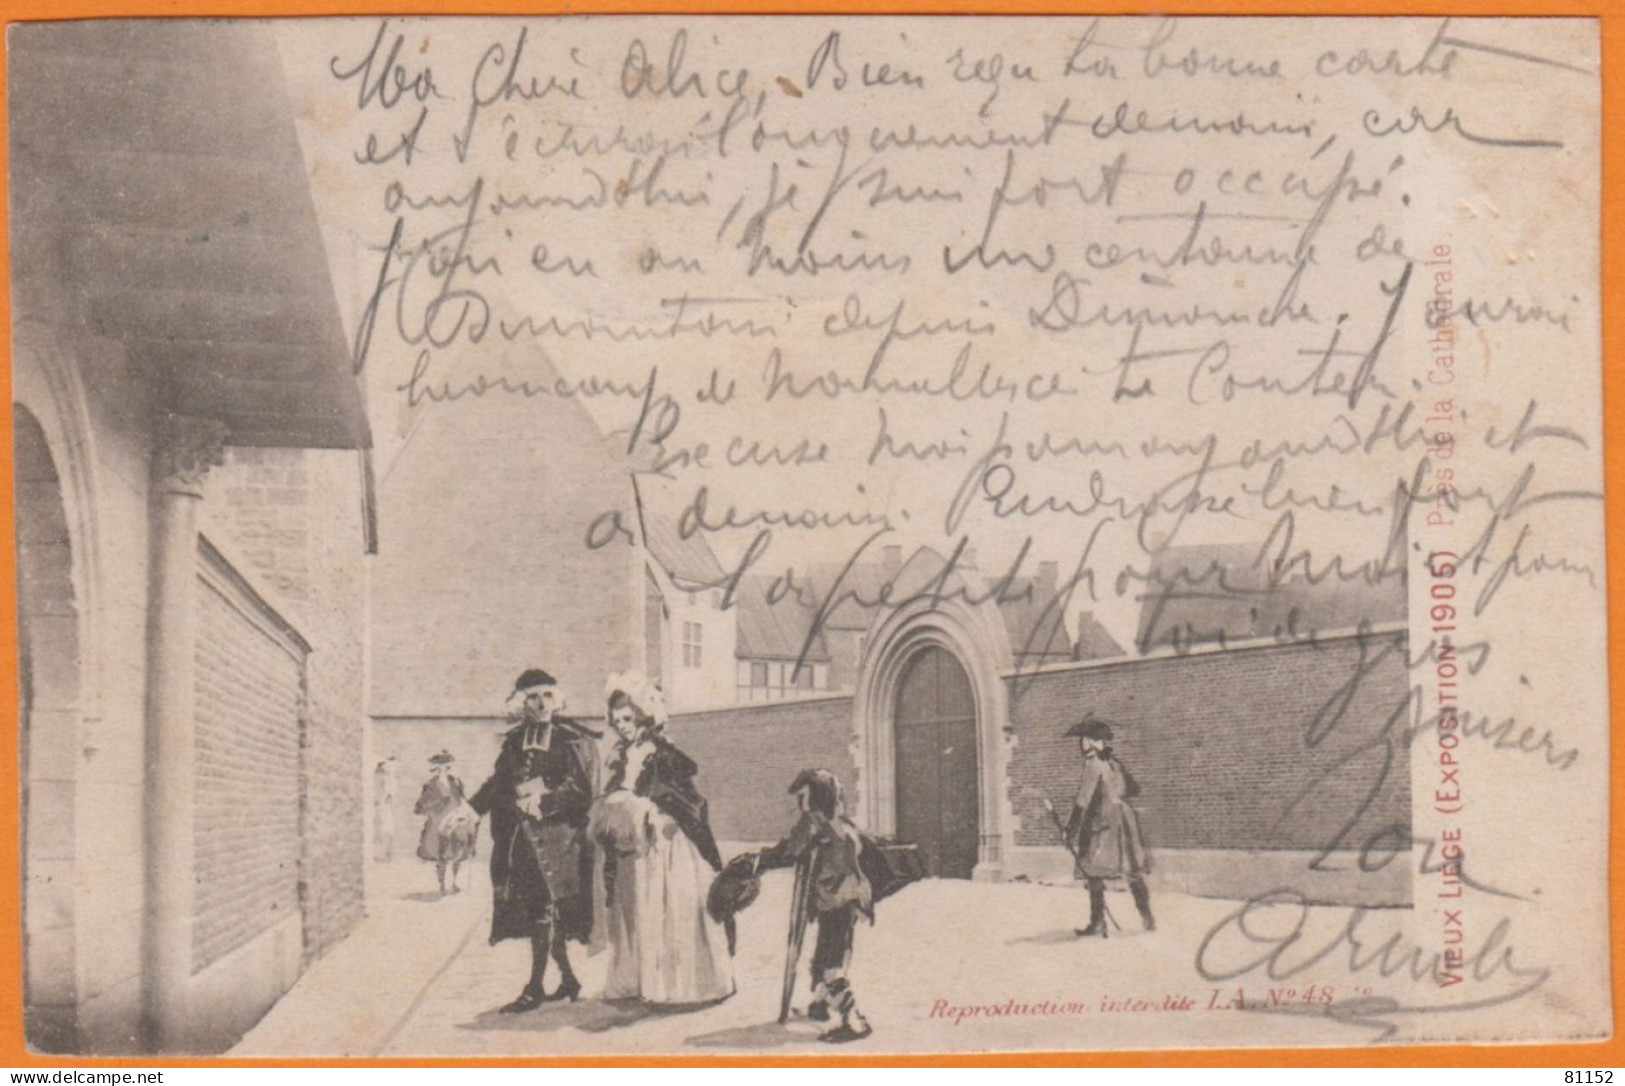 Ma Chère Alice, Bien reçu ta bonne carte
et t'écrirai longuement demain, car
aujourd'hui, je suis fort occupé.
J'ai eu au moins une centaine de
depuis Dimanche. J'aurai
beaucoup de nouvelles à te Conter.
Excuse moi pour aujourd'hui et
à demain. Embrasse bien fort
la petite pour moi et pour
toi de gros
baisers
Ton
VIEUX LIEGE (EXPOSITION 1905) Près de la Cathédrale
Reproduction interdite I.A. Nº 48
81152